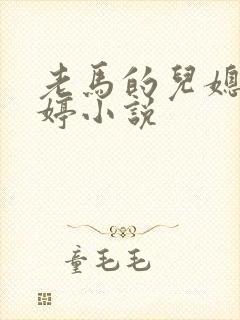 老馬的兒媳
婷小說
童毛毛